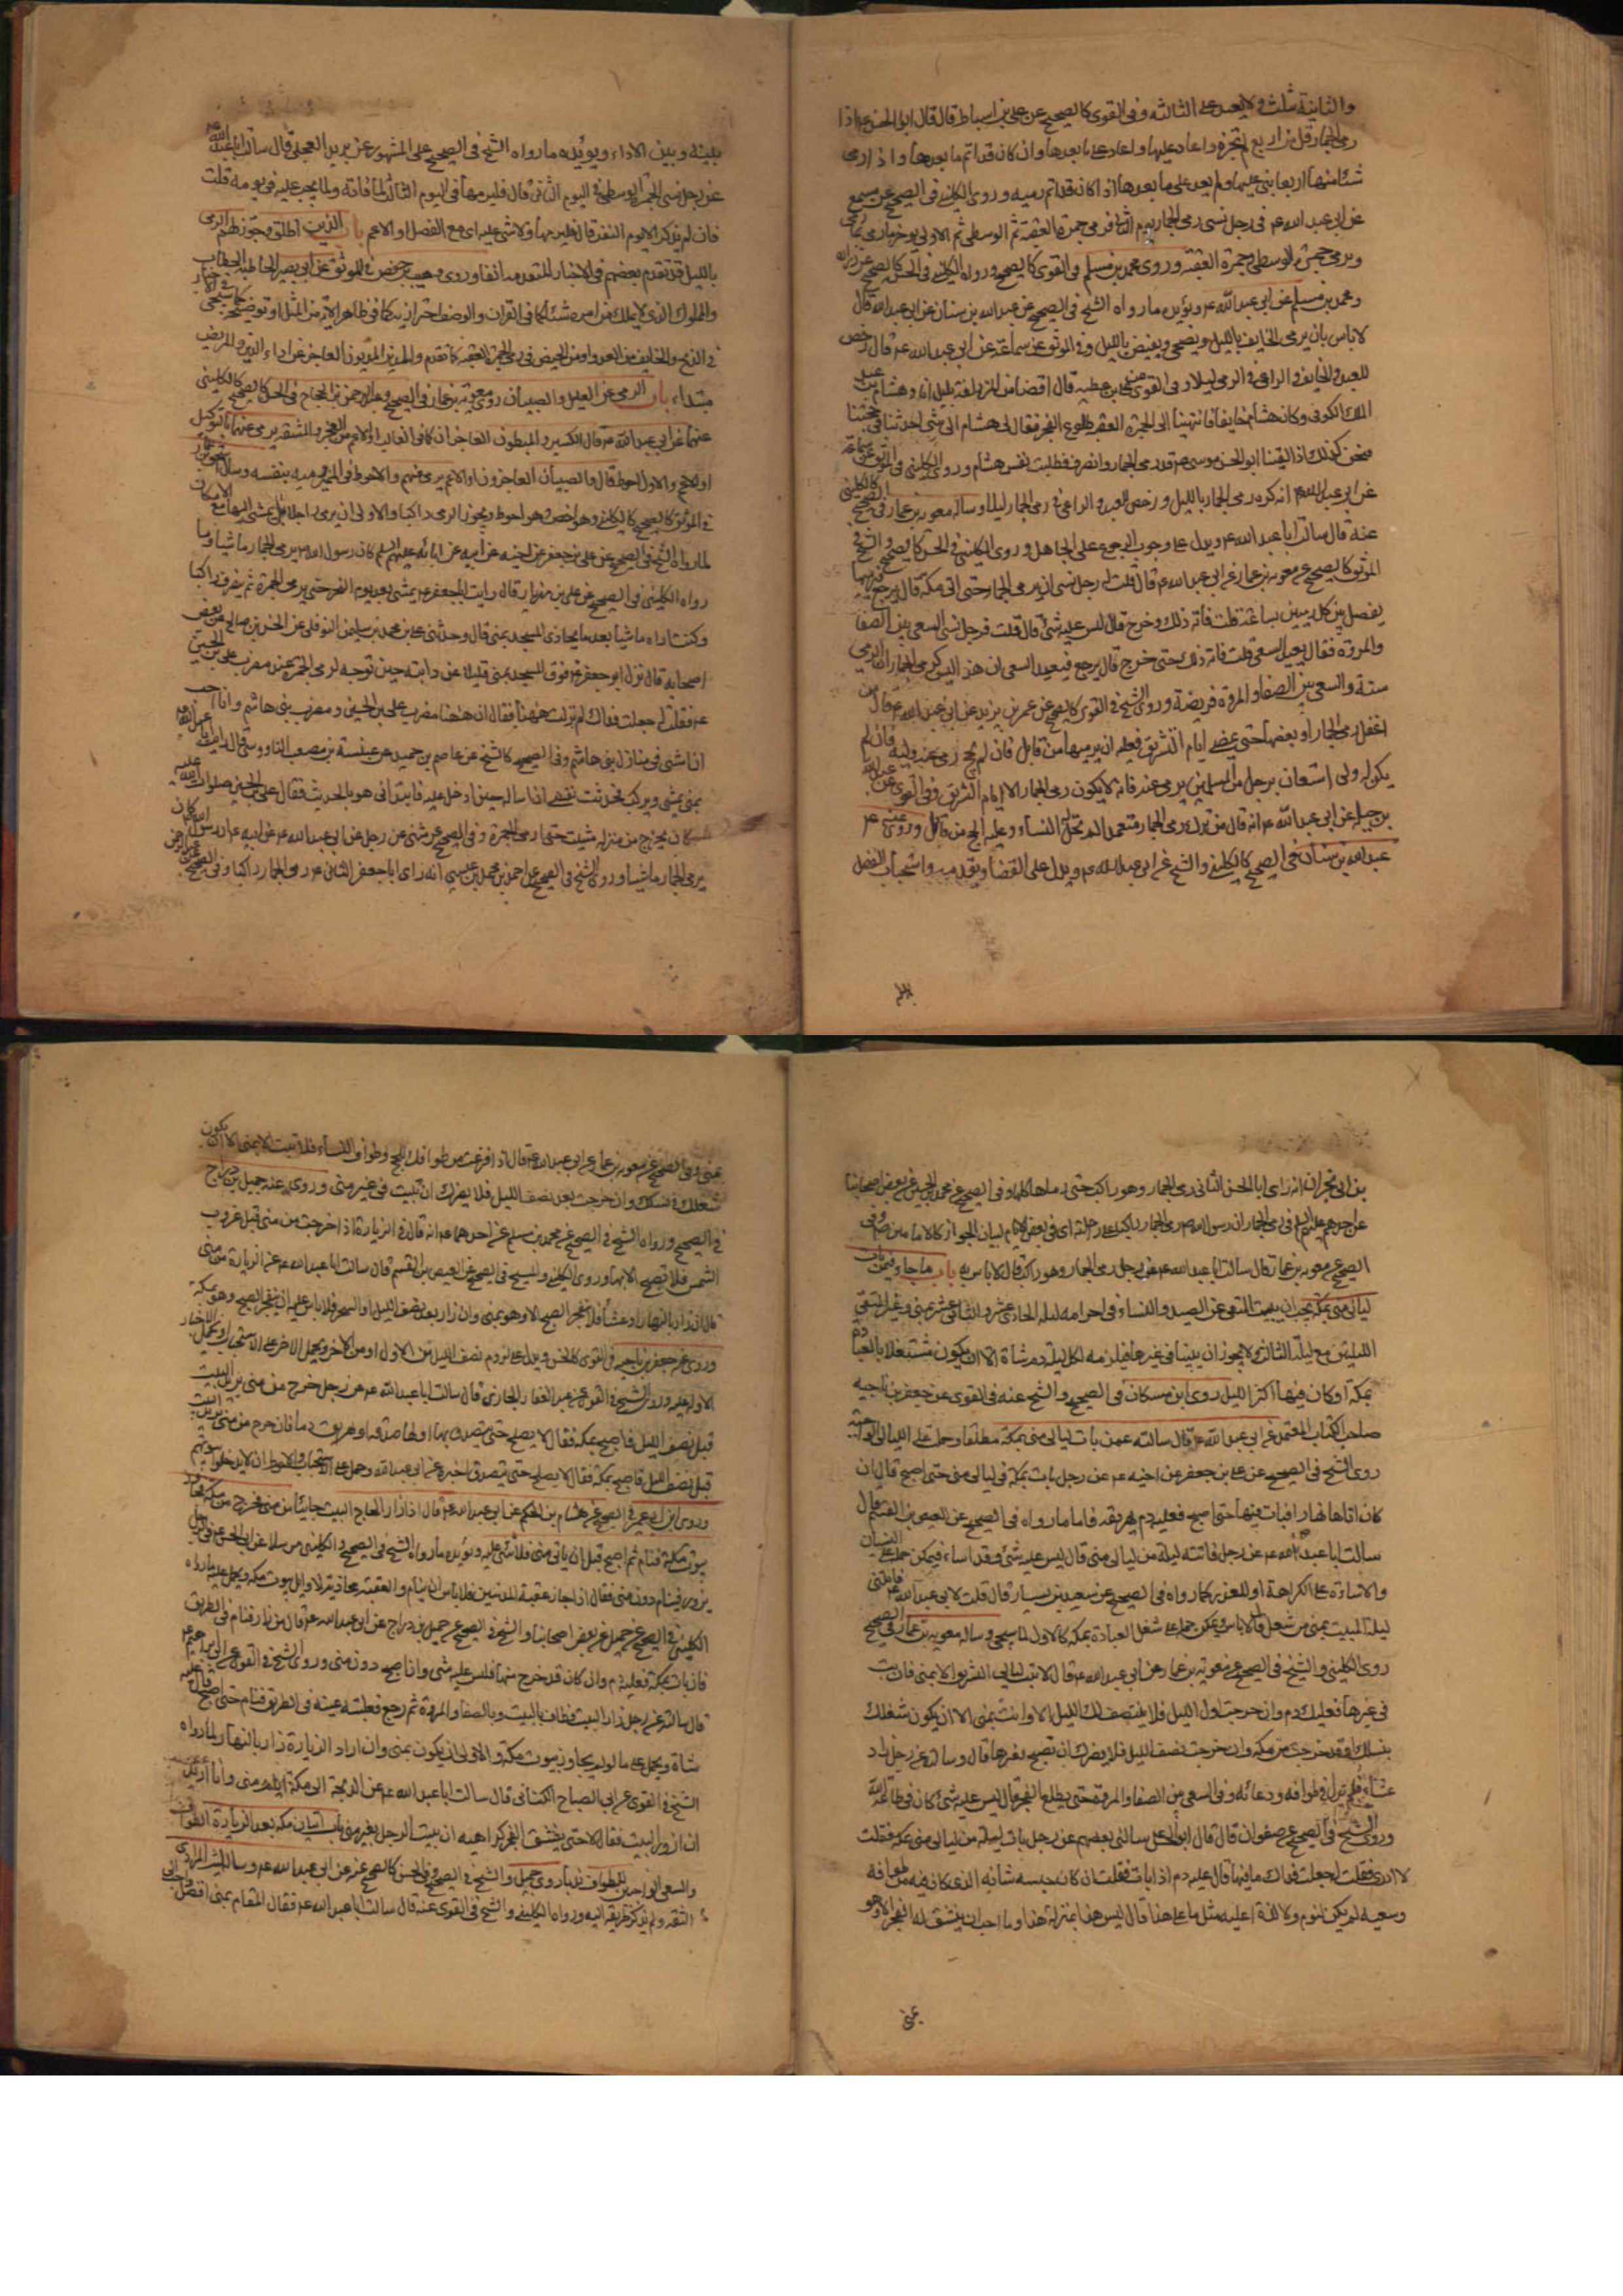 والثانية بثلث ولا يعيد على الثالثة وفي القوي كالصحيح عن علي بن اسباط قال قال ابو الحسن ع اذا
رمى الجمار اقل من اربع لم تجزه واعاد عليها واعاد على ما بعدها وان كان قد اتم ما بعدها واذا رمى
شيئا منها اربعا بنى عليها ولم يعد على ما بعدها اذا كان قد اتم رميه وروى الكليني في الصحيح عن مسمع
عن ابي عبد الله ع في رجل نسي رمي الجمار يوم الثاني فرمى جمرة العقبة ثم الوسطى ثم الاولى يؤخر ما رمى
ويرمي الوسطى وجمرة العقبة وروى محمد بن مسلم في القوي كالصحيح ورواه الكليني في الحسن كالصحيح عن زرارة
ومحمد بن مسلم عن ابي عبد الله ع ويؤيده ما رواه الشيخ في الصحيح عن عبد الله بن سنان عن ابي عبد الله قال
لا باس بان يرمي الخايف بالليل ويضحي ويفيض بالليل وفي الموثق عن سماعة عن ابي عبد الله ع قال رخص
للعبد والخايف والراعي في الرمي ليلا وفي القوي عن علي بن عطية قال افضنا من المزدلفة بليل انا وهشام بن عبد
الملك الكوفي وكان هشام خايفا فانتهينا الى الجمرة العقبة طلوع الفجر فقال لي هشام اي شيء احدثنا في حجتنا
فنحن كذلك اذ لقينا ابو الحسن موسى ع قد رمى الجمار وانصرف فطابت نفس هشام وروى الكليني في الموثق عن سماعة
عن ابي عبد الله ع انه كره رمي الجمار بالليل ورخص للعبد والراعي في رمي الجمار ليلا وساله معوية بن عمار في الصحيح كالكليني
عنه قال سالت ابا عبد الله ع ويدل على وجوب الرجوع على الجاهل وروى الكليني في الحسن كالصحيح والشيخ في
الموثق كالصحيح عن معوية بن عمار عن ابي عبد الله ع قال قلت له رجل نسي ان يرمي الجمار حتى اتى مكة قال يرجع فيرميها
يفصل بين كل رميتين بساعة قلت فاته ذلك وخرج قال ليس عليه شيء قال قلت فرجل نسي السعي بين الصفا
والمروة فقال يعيد السعي قلت فاته ذلك حتى خرج قال يرجع فيعيد السعي ان هذا ليس كرمي الجمار ان الرمي
سنة والسعي بين الصفا والمروة فريضة وروى الشيخ في القوي كالصحيح عن عمر بن يزيد عن ابي عبد الله ع قال من
اغفل رمي الجمار او بعضها حتى يمضي ايام التشريق فعليه ان يرميها من قابل فان لم يحج رمى عنه وليه فان لم
يكن له ولي استعان برجل من المسلمين يرمي عنه فانه لا يكون رمي الجمار الا ايام التشريق وفي القوي عن عبد الله
بن جبلة عن ابي عبد الله ع انه قال من ترك رمي الجمار متعمدا لم تحل له النساء وعليه الحج من قابل وروى عنه ع
عبد الله بن سنان في الصحيح كالكليني والشيخ عن ابي عبد الله ع ويدل على القضاء وتقديمه واستحباب الفصل
بينه وبين الاداء ويؤيده ما رواه الشيخ في الصحيح على المشهور عن بريد العجلي قال سالت ابا عبد الله ع
عن رجل نسي الجمرة الوسطى في اليوم الثاني قال فليرميها في اليوم الثالث لما فاته ولما يجب عليه في يومه قلت
فان لم يذكر الا يوم النفر قال فليرمها ولا شيء عليه اي مع الفصل والاعم باب الذين اطلق وجوز لهم الرمي
بالليل قد تقدم بعضهم في الاخبار المتقدمة انفا وروى وهيب بن حفص في الموثق عن ابي بصير الحاطبة الحطاب
والمملوك الذي لا يملك من امره شيئا
في الذبح والخايف من العدو او من الحيض في رمي الجمرة العقبة كما تقدم والمدين المديون العاجز عن اداء الدين والمريض
مبتداء باب الرمي عن العليل والصبيان روى معوية بن عمار في الصحيح وعبد الرحمن بن الحجاج في الحسن كالصحيح كالكليني
عنهما عن ابي عبد الله ع قال الكسير والمبطون
او الاعم والاول احوط قال والصبيان العاجزون او الاعم يرمى عنهم والاحوط
في الموثق كالصحيح كالكليني
لما رواه الشيخ في الصحيح عن علي بن جعفر عن اخيه عن ابيه عن ابائه عليهم السلم كان رسول الله ص يرمي الجمار ماشيا وما
رواه الكليني في الصحيح عن علي بن مهزيار قال رايت ابا جعفر ع يمشي بعد يوم النحر حتى يرمي الجمرة ثم ينصرف راكبا
وكنت اراه ماشيا بعد ما يحاذي المسجد بمنى قال وحدثني علي بن محمد بن سليمن النوفلي عن الحسن بن صالح عن بعض
اصحابه قال نزل ابو جعفر ع فوق المسجد بمنى قليلا عن دابته حين توجه لرمي الجمرة عند مضرب علي بن الحسين
ع فقلت له جعلت فداك لم نزلت ههنا فقال ان ههنا مضرب علي بن الحسين ومضرب بني هاشم وانا احب
ان امشي في منازل بني هاشم وفي الصحيح كالشيخ عن عاصم بن حميد عن عنبسة بن مصعب الناووسي قال رايت ابا عبد الله ع
بمنى يمشي ويركب فحدثت نفسي ان اساله حين ادخل عليه فابتداني هو بالحديث فقال علي بن الحسين صلوات الله عليه
كان يخرج من منزله ماشيا حتى رمى الجمرة وفي الصحيح عن مثنى عن رجل عن ابي عبد الله ع عن ابيه ع ان رسول الله ص كان
يرمي الجمار ماشيا وروى الشيخ في الصحيح عن احمد بن محمد بن عيسى انه راى ابا جعفر الثاني ع رمى الجمار راكبا وفي الصحيح عن عبد الرحمن
بن ابي نجران انه راى ابا الحسن الثاني رمى الجمار وهو راكب حتى رماها كلها وفي الصحيح عن محمد بن الحسين عن بعض اصحابنا
عن احدهم عليهم السلم في رمي الجمار ان رسول الله ص رمى الجمار راكبا على راحلته اي في بعض الايام لبيان الجواز وفي
الصحيح عن معوية بن عمار قال سالت ابا عبد الله ع عن رجل رمى الجمار وهو راكب قال لا باس به باب ما جاء فيمن بات
ليالي منى بمكة يجب ان يبيت المتقي عن الصيد والنساء في احرامه ليلة الحادي عشر والثاني عشر بمنى وغير المتقي
الليلتين مع ليلة الثالث ولا يجوز ان يبيتا في غيرها فيلزمه لكل ليلة دم شاة الا ان يكون مشتغلا بالعبادة
بمكة او كان فيها اكثر الليل روى ابن مسكان في الصحيح والشيخ عنه في القوي عن جعفر بن ناجية
صاحب الكتاب المعتمد عن ابي عبد الله ع قال سالته عمن بات ليالي منى بمكة مطلقا وحمل على الليالي الواجبة
روى الشيخ في الصحيح عن علي بن جعفر عن اخيه ع عن رجل بات بمكة في ليالي منى حتى اصبح قال ان
كان اتاها نهارا فبات فيها حتى اصبح فعليه دم يهريقه فاما ما رواه في الصحيح عن العيص بن القسم قال
سالت ابا عبد الله ع عن رجل فاتته ليلة من ليالي منى قال ليس عليه شيء وقد اساء فيمكن حمله على النسيان
والاساءة على الكراهة او للعذر كما رواه في الصحيح عن سعيد بن يسار قال قلت لابي عبد الله ع فاتتني
ليلة المبيت بمنى من شغل قال لا باس ويمكن حمله على شغل العبادة بمكة كالاول لما سيجيء وساله معوية بن عمار في الصحيح
روى الكليني والشيخ في الصحيح عن معوية بن عمار عن ابي عبد الله ع قال لا تبت ليالي التشريق الا بمنى فان بت
في غيرها فعليك دم وان خرجت اول الليل فلا ينتصف لك الليل الا وانت بمنى الا ان يكون شغلك
بنسكك او قد خرجت من مكة وان خرجت نصف الليل فلا يضرك ان تصبح بغيرها قال وسالته عن رجل زار
عشاء فلم يزل في طوافه ودعائه وفي السعي بين الصفا والمروة حتى يطلع الفجر قال ليس عليه شيء كان في طاعة الله
وروى الشيخ في الصحيح عن صفوان قال قال ابو الحسن سالني بعضهم عن رجل بات ليلة من ليالي منى بمكة فقلت
لا ادري فقلت له جعلت فداك ما فيها قال عليه دم اذا بات فقلت ان كان حبسه شانه الذي كان فيه من طوافه
وسعيه لم يكن لنوم ولا لذة اعليه مثل ما على هذا قال ليس هذا بمنزلة هذا وما احب ان ينشق له الفجر الا وهو
بمنى
بمنى وفي الصحيح عن معوية بن عمار عن ابي عبد الله ع قال اذا فرغت من طوافك للحج وطواف النساء فلا تبيت الا بمنى الا ان يكون
شغلك في نسكك وان خرجت بعد نصف الليل فلا يضرك ان تبيت في غير منى وروى عنه جميل بن دراج
في الصحيح ورواه الشيخ في الصحيح عن محمد بن مسلم عن احدهما ع انه قال في الزيارة اذا خرجت من منى قبل غروب
الشمس فلا تصبح الا بها وروى الكليني والشيخ في الصحيح عن العيص بن القسم قال سالت ابا عبد الله ع عن الزيارة من منى
قال ان زار بالنهار او عشاء فلا ينفجر الصبح الا وهو بمنى وان زار بعد نصف الليل او السحر فلا باس عليه ان ينفجر الصبح وهو بمكة
وروى عن جعفر بن ناجية في القوي كالحسن ويدل على لزوم نصف الليل من الاول او من الاخر ويحمل الاخر على الاستحباب
الاولة عليه وروى الشيخ في القوي عن عبد الغفار الجازي قال سالت ابا عبد الله ع عن رجل خرج من منى يريد البيت
قبل نصف الليل فاصبح بمكة فقال لا يصلح له حتى يتصدق بها صدقة او يهريق دما فان خرج من منى يريد البيت
قبل نصف الليل فاصبح بمكة فقال لا يصلح له حتى يتصدق
وروى ابن ابي عمير في الصحيح عن هشام بن الحكم عن ابي عبد الله ع قال اذا زار الحاج البيت جائيا من منى فخرج من مكة فجاوز
بيوت مكة فنام ثم اصبح قبل ان ياتي منى فلا شيء عليه ويؤيده ما رواه الشيخ في الصحيح والكليني مرسلا عن ابي الحسن ع في الرجل
يزور فينام دون منى فقال اذا جاز عقبة المدنيين فلا باس ان ينام
الكليني في الصحيح عن جميل عن بعض اصحابنا والشيخ في الصحيح عن جميل بن دراج عن ابي عبد الله ع قال من زار فنام في الطريق
فان بات بمكة فعليه دم وان كان قد خرج منها فليس عليه شيء وان اصبح دون منى وروى الشيخ في القوي عن ابي ابراهيم ع
قال سالته عن رجل زار البيت فطاف بالبيت وبالصفا والمروة ثم رجع فغلبته عينه في الطريق فنام حتى اصبح قال عليه
شاة ويحمل على ما لو لم يجاوز بيوت مكة والاولى ان يكون بمنى وان اراد الزيارة زار بالنهار لما رواه
الشيخ في القوي عن ابي الصباح الكناني قال سالت ابا عبد الله ع عن الدلجة الى مكة ايام منى وانا اريد
ان ازور البيت فقال لا حتى ينشق الفجر كراهية ان يبيت الرجل بغير منى باب اتيان مكة بعد الزيارة للطواف
والسعي للطواف ندبا روى جميل والشيخ في الصحيح وفي الحسن كالصحيح عنه عن ابي عبد الله ع وساله ليث المرادي
الثقة ولم يذكر طريقه اليه ورواه الكليني والشيخ في القوي عنه قال سالت ابا عبد الله ع فقال المقام بمنى افضل